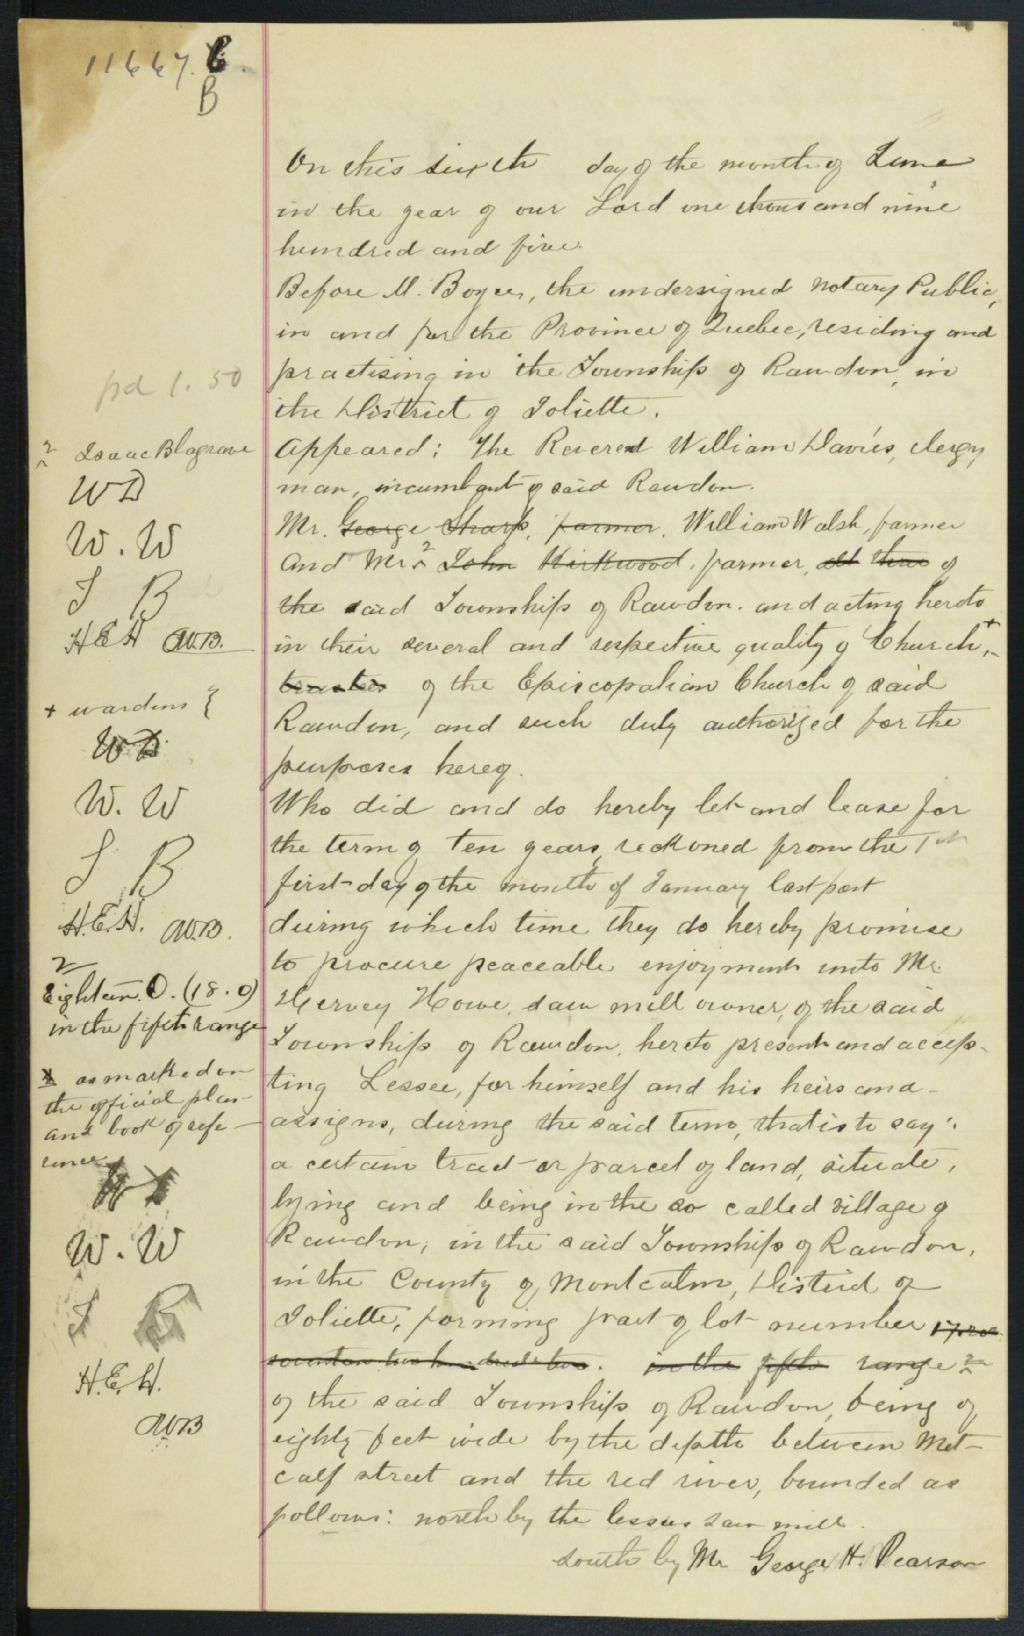 11667. B
B
On this sixth day of the month of June
in the year of our Lord one thousand nine
hundred and five.
Before M. Boyce, the undersigned Notary Public,
in and for the Province of Quebec, residing and
practising in the Township of Rawdon, in
the District of Joliette.
pd 1.50
Appeared: The Reverend William Davies, clergy
man, incumbent of said Rawdon.
Mr. George Sharp, farmer, William Walsh, farmer
and Mr. 2 John Kirkwood, farmer, all three of
the said Township of Rawdon. and acting hereto
in their several and respective quality of Church +
trustees of the Episcopalian Church of said
Rawdon, and such duly authorized for the
purposes hereof.
Who did and do hereby let and lease for
the term of ten years, reckoned from the
first day of the month of January last past
during which time they do hereby promise
to procure peaceable enjoyment unto Mr.
Hervey Howe, saw mill owner, of the said
Township of Rawdon, hereto present and accep-
ting Lessee, for himself and his heirs and
assigns, during the said term, that is to say:
a certain tract or parcel of land, situate,
lying and being in the so called village of
Rawdon, in the said Township of Rawdon,
in the County of Montcalm, District of
Joliette, forming part of lot number
in the fifth range 2
of the said Township of Rawdon, being of
eighty feet wide by the depth between Met-
calf street and the red river, bounded as
follows: north by the lessees saw mill.
south by Mr George H. Pearson
2 Isaac Blagrave
WD
W. W
I B
H E H MB.
+ wardens {
WD
W. W
I B
H.E.H. MB.
2
Eighteen. O. (18. O)
in the fifth range
x as marked on
the official plan
and book of refe-
rence
W. W
I B
H.E.H.
MB